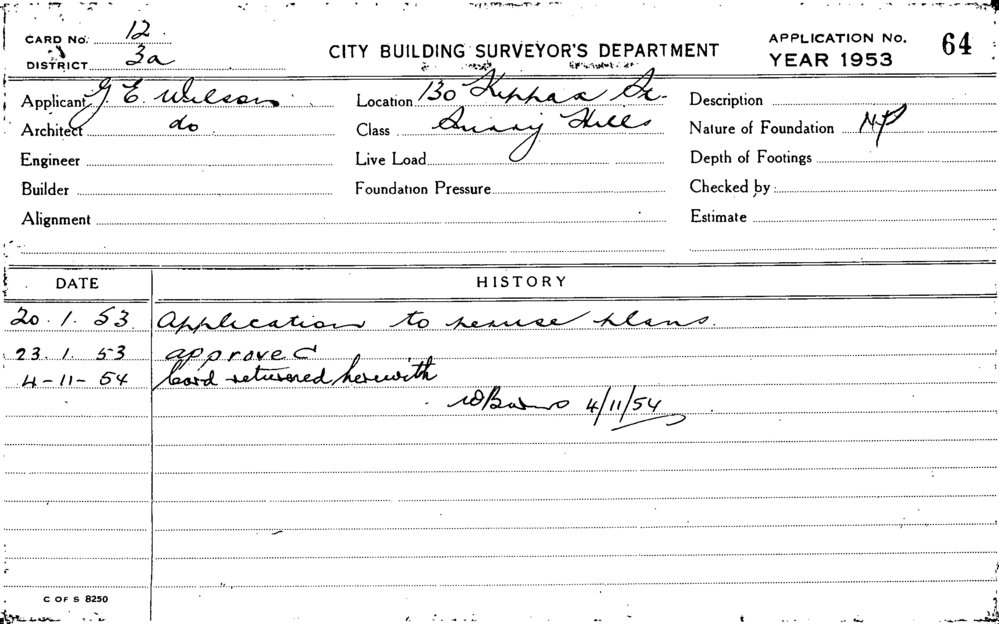 CARD No. 12
DISTRICT 3a
CITY BUILDING SURVEYOR'S DEPARTMENT
APPLICATION No. 64
YEAR 1953
Applicant J. E. Wilson
Location 130 Kippax St.
Description
Architect do
Class Surry Hills
Nature of Foundation NP
Engineer
Live Load
Depth of Footings
Builder
Foundation Pressure
Checked by:
Alignment
Estimate
DATE HISTORY
20. 1. 53 Application to peruse plans.
23. 1. 53 approved
4-11-54 Card returned herewith
4/11/54
C OF S 8250